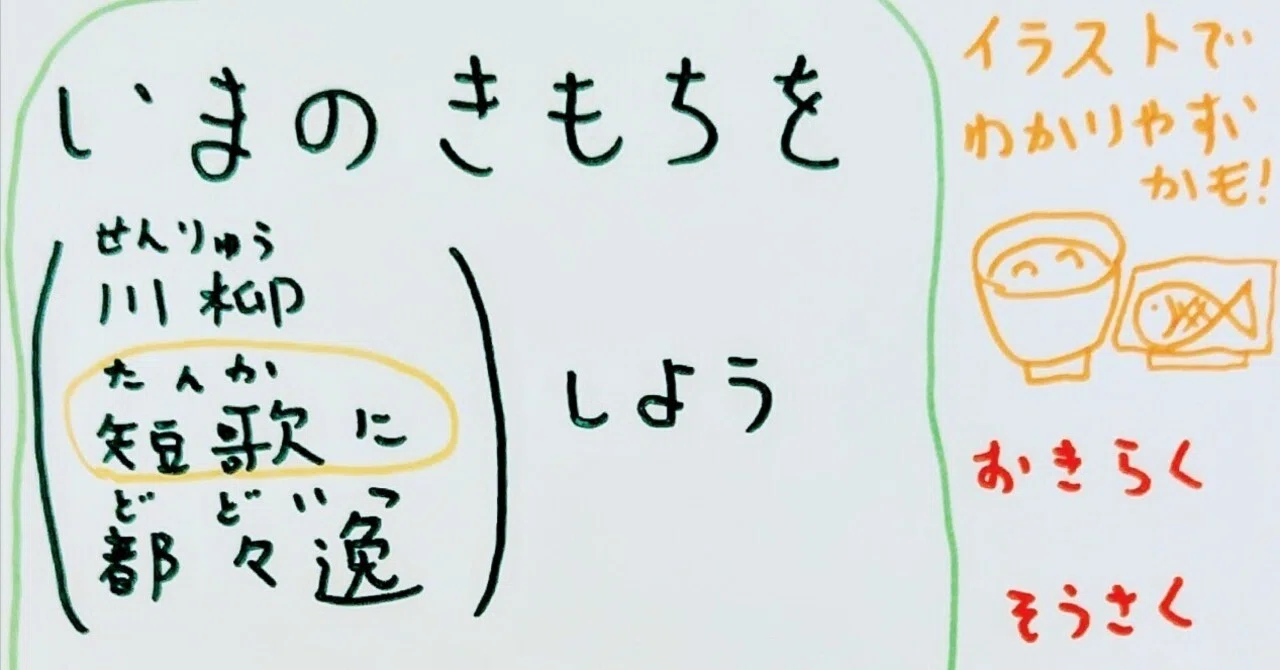 いまのきもちを
せんりゅう
川柳
たんか
短歌に
どどいつ
都々逸
しよう
イラストで
わかりやすい
かも!
おきらく
そうさく